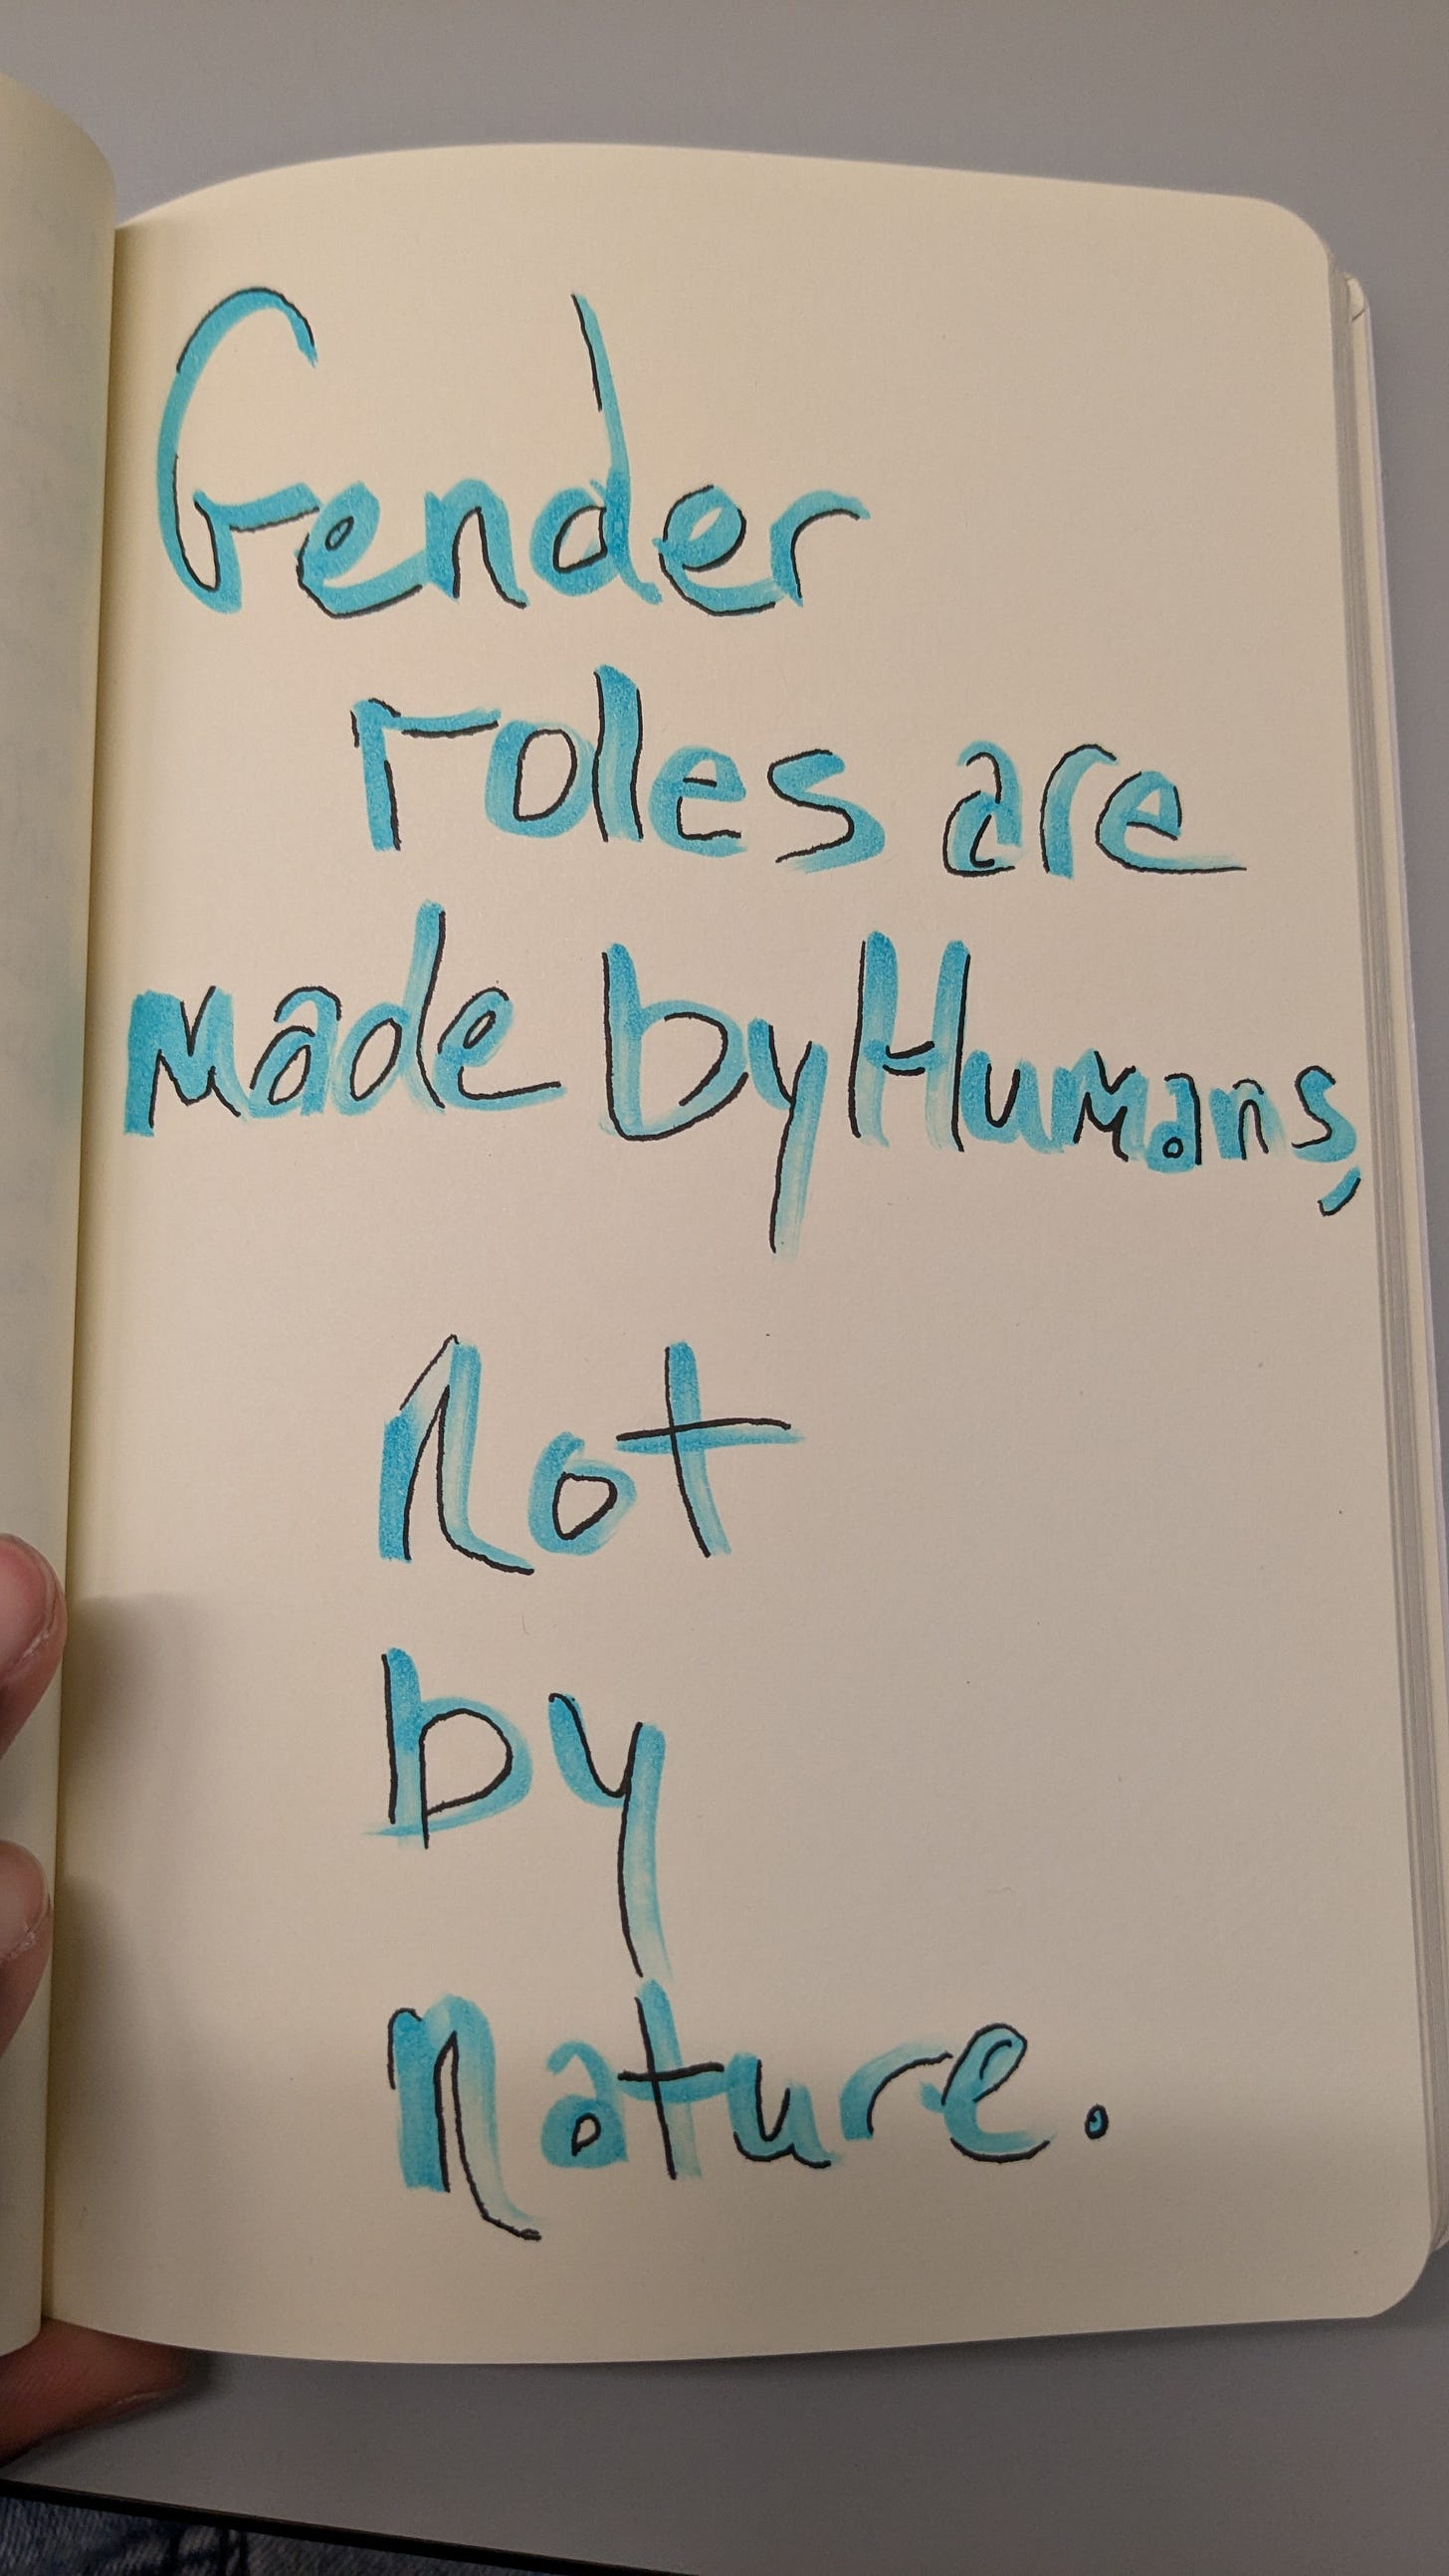 Gender
roles are
made by Humans,
Not
by
Nature.